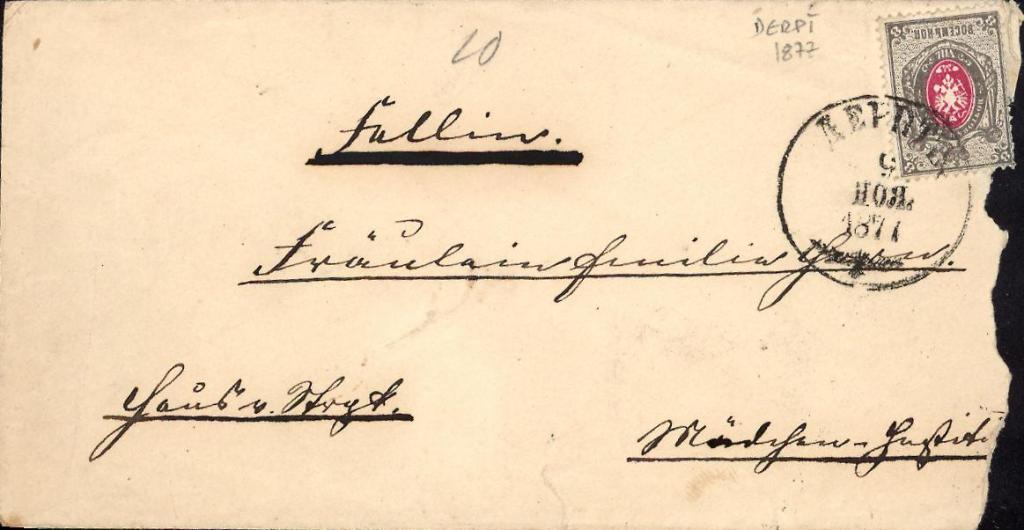 10
DERPT
1877
ВОСЕМЬ КОП.
ДЕРПТЪ
9
НОЯ.
1877
Fellin.
Fräulein Emilie
Haus v. Stryk.
Mädchen-Institut